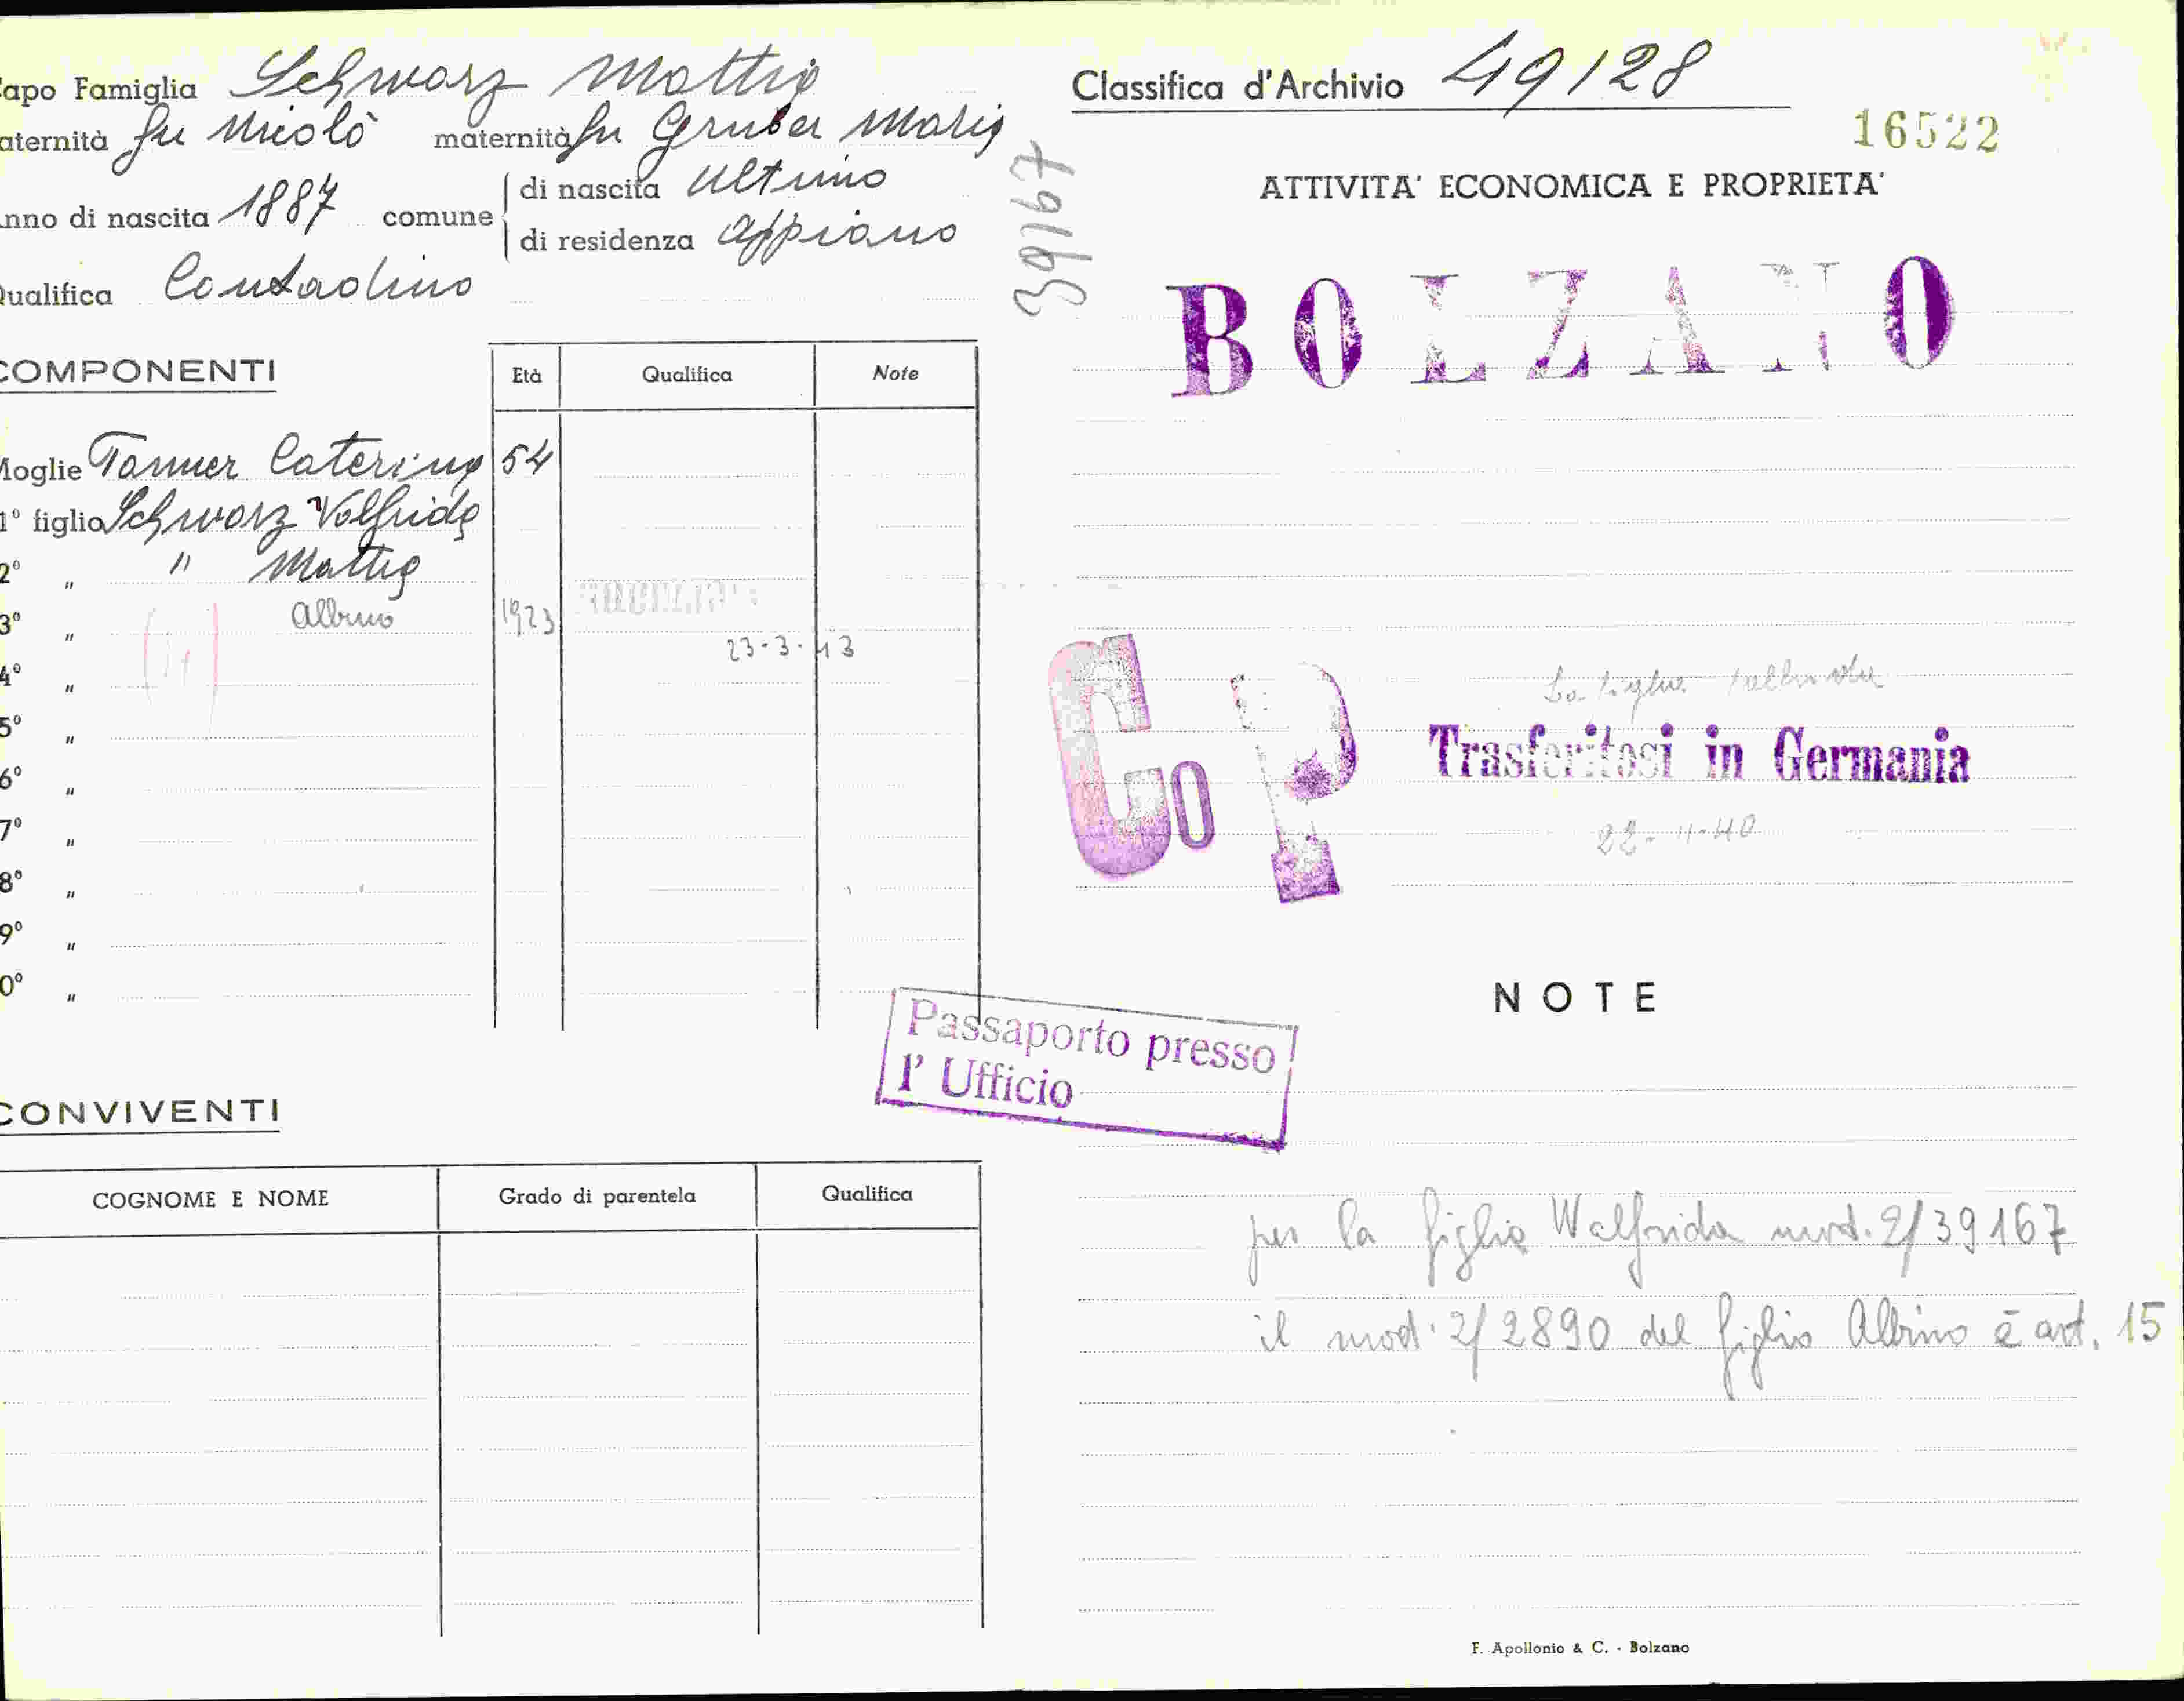 apo Famiglia Schwarz Mattia
aternità fu Nicolò maternità fu Gruber Maria
nno di nascita 1887 comune di nascita Ultimo
di residenza Appiano
ualifica Contadino
39167
COMPONENTI
Età Qualifica Note
Moglie Tanner Caterina 54
1º figlio Schwarz Volfrida
2º " " Mattia
3º " Albino 1923
23-3-43
4º "
5º "
6º "
7º "
8º "
9º "
0º "
CONVIVENTI
COGNOME E NOME Grado di parentela Qualifica
Classifica d'Archivio 49128
16522
ATTIVITA' ECONOMICA E PROPRIETA'
BOLZANO
La figlia
CoP
Trasferitosi in Germania
22-11-40
NOTE
Passaporto presso
l' Ufficio
per la figlia Walfrida mod. 2/39167
il mod. 2/2890 del figlio Albino è art. 15
F. Apollonio & C. - Bolzano